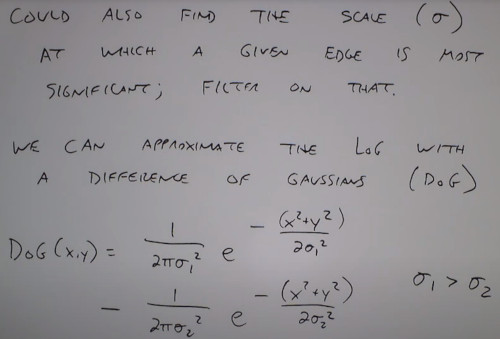 COULD ALSO FIND THE SCALE (σ)
AT WHICH A GIVEN EDGE IS MOST
SIGNIFICANT; FILTER ON THAT.
WE CAN APPROXIMATE THE LoG WITH
A DIFFERENCE OF GAUSSIANS (DoG)
DoG(x,y) = 1/(2πσ₁²) e^(-(x²+y²)/(2σ₁²))
- 1/(2πσ₂²) e^(-(x²+y²)/(2σ₂²)) σ₁ > σ₂